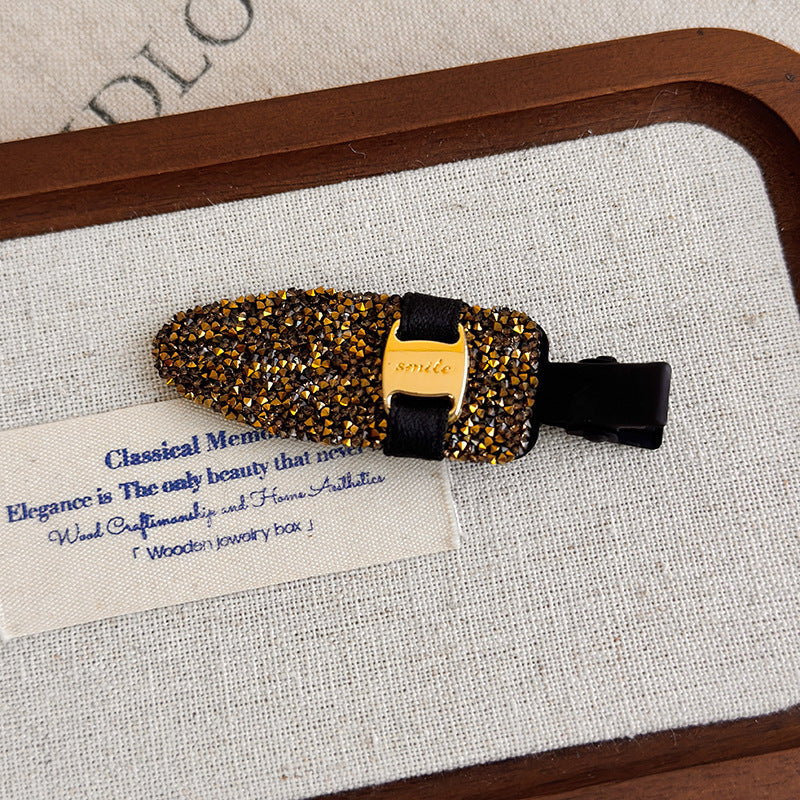 DLO
smile
Classical Memo
Elegance is The only beauty that never
Wood Craftsmanship and Home Aesthetics
「 Wooden jewelry box 」